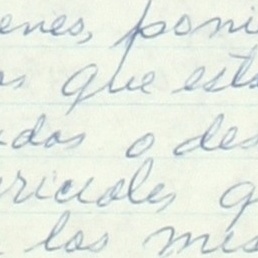 enes, poni
os que est
dos o des
riciales q
los mis